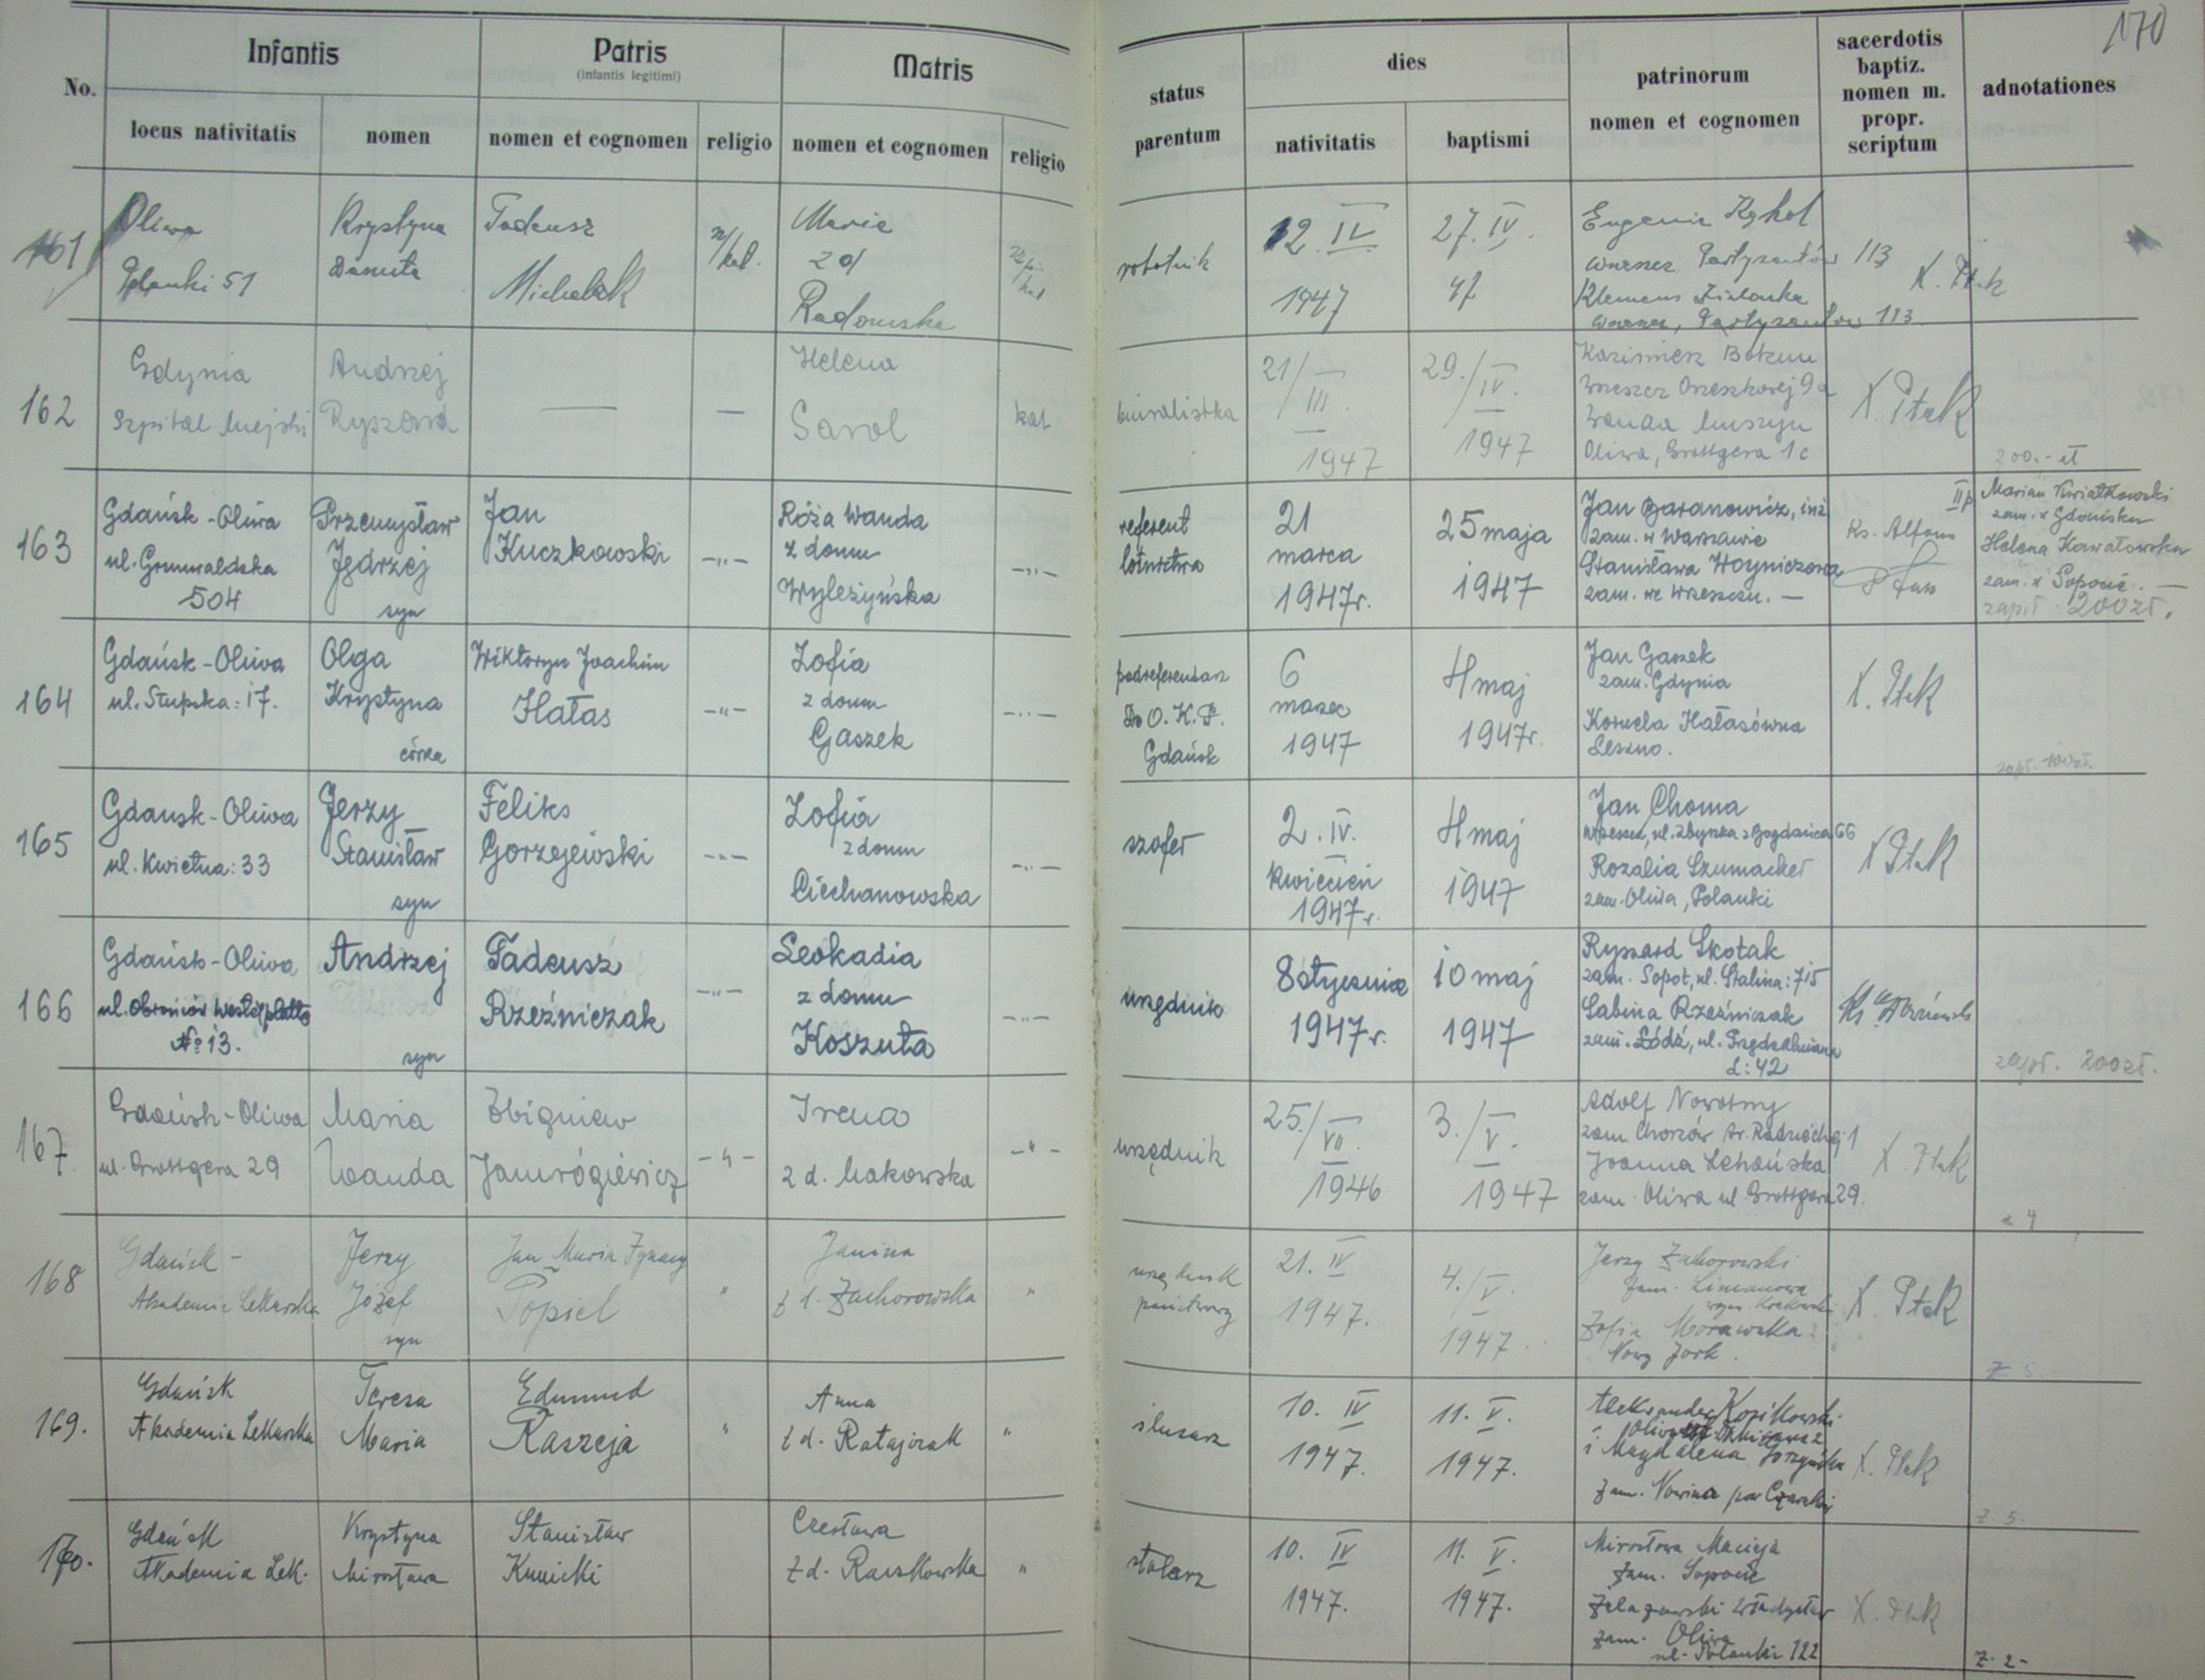 170
Infantis
Patris
(infantis legitimi)
Matris
No.
locus nativitatis
nomen
nomen et cognomen
religio
nomen et cognomen
religio
status
parentum
dies
nativitatis
baptismi
patrinorum
nomen et cognomen
sacerdotis
baptiz.
nomen m.
propr.
scriptum
adnotationes
161
Oliwa
Polanki 51
Krystyna
Danuta
Tadeusz
Michalak
Maria
z d
Radomska
robotnik
12. IV
1947
27. IV.
47
Eugenia
Partyzantów 113
Klemens Zielonka
Partyzantów 113
X. Ptak
162
Gdynia
Szpital Miejski
Andrzej
Ryszard
—
—
Helena
Sarol
kat
21/III.
1947
29./IV.
1947
Kazimierz
Wrzeszcz Orzeszkowej 9a
Wanda
Oliwa, Grottgera 1c
X. Ptak
200.- zł
163
Gdańsk - Oliwa
ul. Grunwaldzka
504
Przemysław
Jędrzej
syn
Jan
Kuczkowski
-„-
Róża Wanda
z domu
Wyleżyńska
-„-
referent
lotnictwa
21
marca
1947r.
25 maja
1947
Jan Baranowicz, inż
zam. w Warszawie
Stanisława Woyniczowa
zam. we Wrzeszczu. —
Ks. Alfons
IIp
Marian Kwiatkowski
zam. w Gdańsku
Helena Kawałowska
zam. w Sopocie. —
zapł. 200zł.
164
Gdańsk - Oliwa
ul. Słupska: 17.
Olga
Krystyna
córka
Wiktoryn Joachim
Hałas
-„-
Zofia
z domu
Gaszek
-„-
podreferendarz
D.O.K.P.
Gdańsk
6
marzec
1947
4 maj
1947r.
Jan Gaszek
zam. Gdynia
Kornela Hałasówna
Leszno.
X. Ptak
zapł. 100zł.
165
Gdańsk - Oliwa
ul. Kwietna: 33
Jerzy
Stanisław
syn
Feliks
Gorzejewski
-„-
Zofia
z domu
Ciechanowska
-„-
szofer
2. IV.
kwiecień
1947r.
4 maj
1947
Jan Choma
Wrzeszcz, ul. Zbyszka z Bogdańca 66
Rozalia Szumacher
zam. Oliwa, Polanki
X Ptak
166
Gdańsk - Oliwa
ul. Obrońców Westerplatte
№ 13.
Andrzej
syn
Tadeusz
Rzeźniczak
-„-
Leokadia
z domu
Koszuta
-„-
urzędnik
8 stycznia
1947r.
10 maj
1947
Ryszard Skotak
zam. Sopot, ul. Stalina: 715
Sabina Rzeźniczak
zam. Łódź, ul. Przędzalniana
L: 42
Ks
zapł. 200zł.
167
Gdańsk - Oliwa
ul. Grottgera 29
Maria
Wanda
Zbigniew
Jamrógiewicz
-„-
Irena
z d. Makowska
-„-
urzędnik
25./VII.
1946
3./V.
1947
Adolf Nowotny
zam. Chorzów 1
Joanna Lehańska
zam. Oliwa ul Grottgera 29.
X. Ptak
z 4
168
Gdańsk -
Akademia Lekarska
Jerzy
Józef
syn
Jan Maria Ignacy
Popiel
"
Janina
z d. Zachorowska
"
urzędnik
państwowy
21. IV
1947.
4./V.
1947.
Jerzy Zachorowski
Zam. Limanowa
Zofia Morawska
Nowy Jork.
X. Ptak
z 5.
169.
Gdańsk
Akademia Lekarska
Teresa
Maria
Edmund
Raszeja
"
Anna
z d. Ratajczak
"
ślusarz
10. IV
1947.
11. V.
1947.
Aleksander Kosikowski
i Magdalena Gorzyńska
Zam.
X. Ptak
z 5.
170.
Gdańsk
Akademia Lek.
Krystyna
Mirosława
Stanisław
Kunicki
Czesława
z d. Raszkowska
"
stolarz
10. IV
1947.
11. V.
1947.
Mirosława Macieja
Zam. Sopocie
Żelazowski Władysław
Zam. Oliwa
ul. Polanki 122
X. Ptak
z. 2-